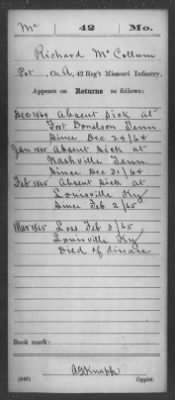 Mc 42 Mo.
Richard McCollum
Pvt., Co. A, 42 Reg't Missouri Infantry.
Appears on Returns as follows:
Dec 1864 Absent Sick at
Fort Donelson Tenn
Since Dec 24/64
Jan 1865 Absent Sick at
Nashville Tenn
Since Dec 31/64
Feb 1865 Absent Sick at
Louisville Ky
Since Feb 2/65
Mar 1865 Loss Feb 3/65
Louisville Ky
Died of disease
Book mark:
(546) Copyist.